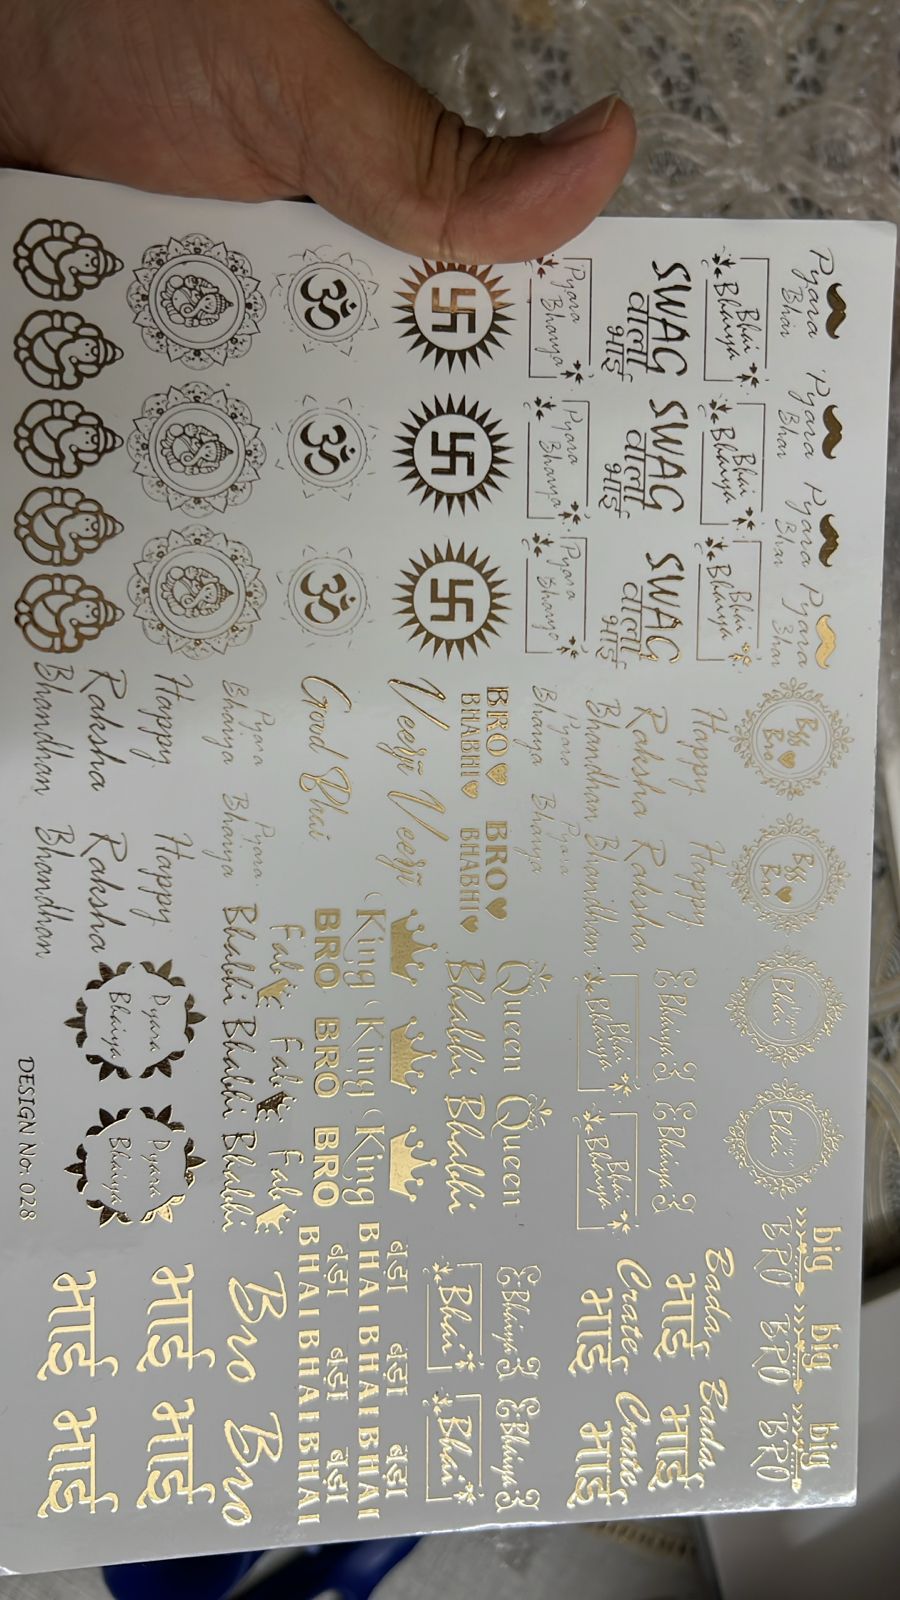 Pyara Pyara Pyara Pyara
Bhai Bhai Bhai Bhai
Bff Bff
Bro Bro
Bhai Bhai
big big big
BRO BRO BRO
Bhai Bhai Bhai
Bhaiya Bhaiya Bhaiya
SWAG SWAG SWAG
वाला वाला वाला
भाई भाई भाई
Happy Happy
Raksha Raksha
Bhandhan Bhandhan
Bhaiya Bhaiya
Bhai Bhai
Bhaiya Bhaiya
Bada Bada
भाई भाई
Crate Crate
भाई भाई
Pyara Pyara Pyara
Bhaiya Bhaiya Bhaiya
Pyara Pyara
Bhaiya Bhaiya
Queen Queen
Bhabhi Bhabhi
Bhaiya Bhaiya
Bhai Bhai
BRO BRO
BHABHI BHABHI
Veerji Veerji
King King King
BRO BRO BRO
बड़ा बड़ा बड़ा
BHAI BHAI BHAI
बड़ा बड़ा बड़ा
BHAI BHAI BHAI
God Bhai
Pyara Pyara
Bhaiya Bhaiya
Fab Fab Fab
Bhabhi Bhabhi Bhabhi
Bro Bro
Happy Happy
Raksha Raksha
Bhandhan Bhandhan
Pyara Pyara
Bhaiya Bhaiya
भाई भाई
भाई भाई
DESIGN No: 028